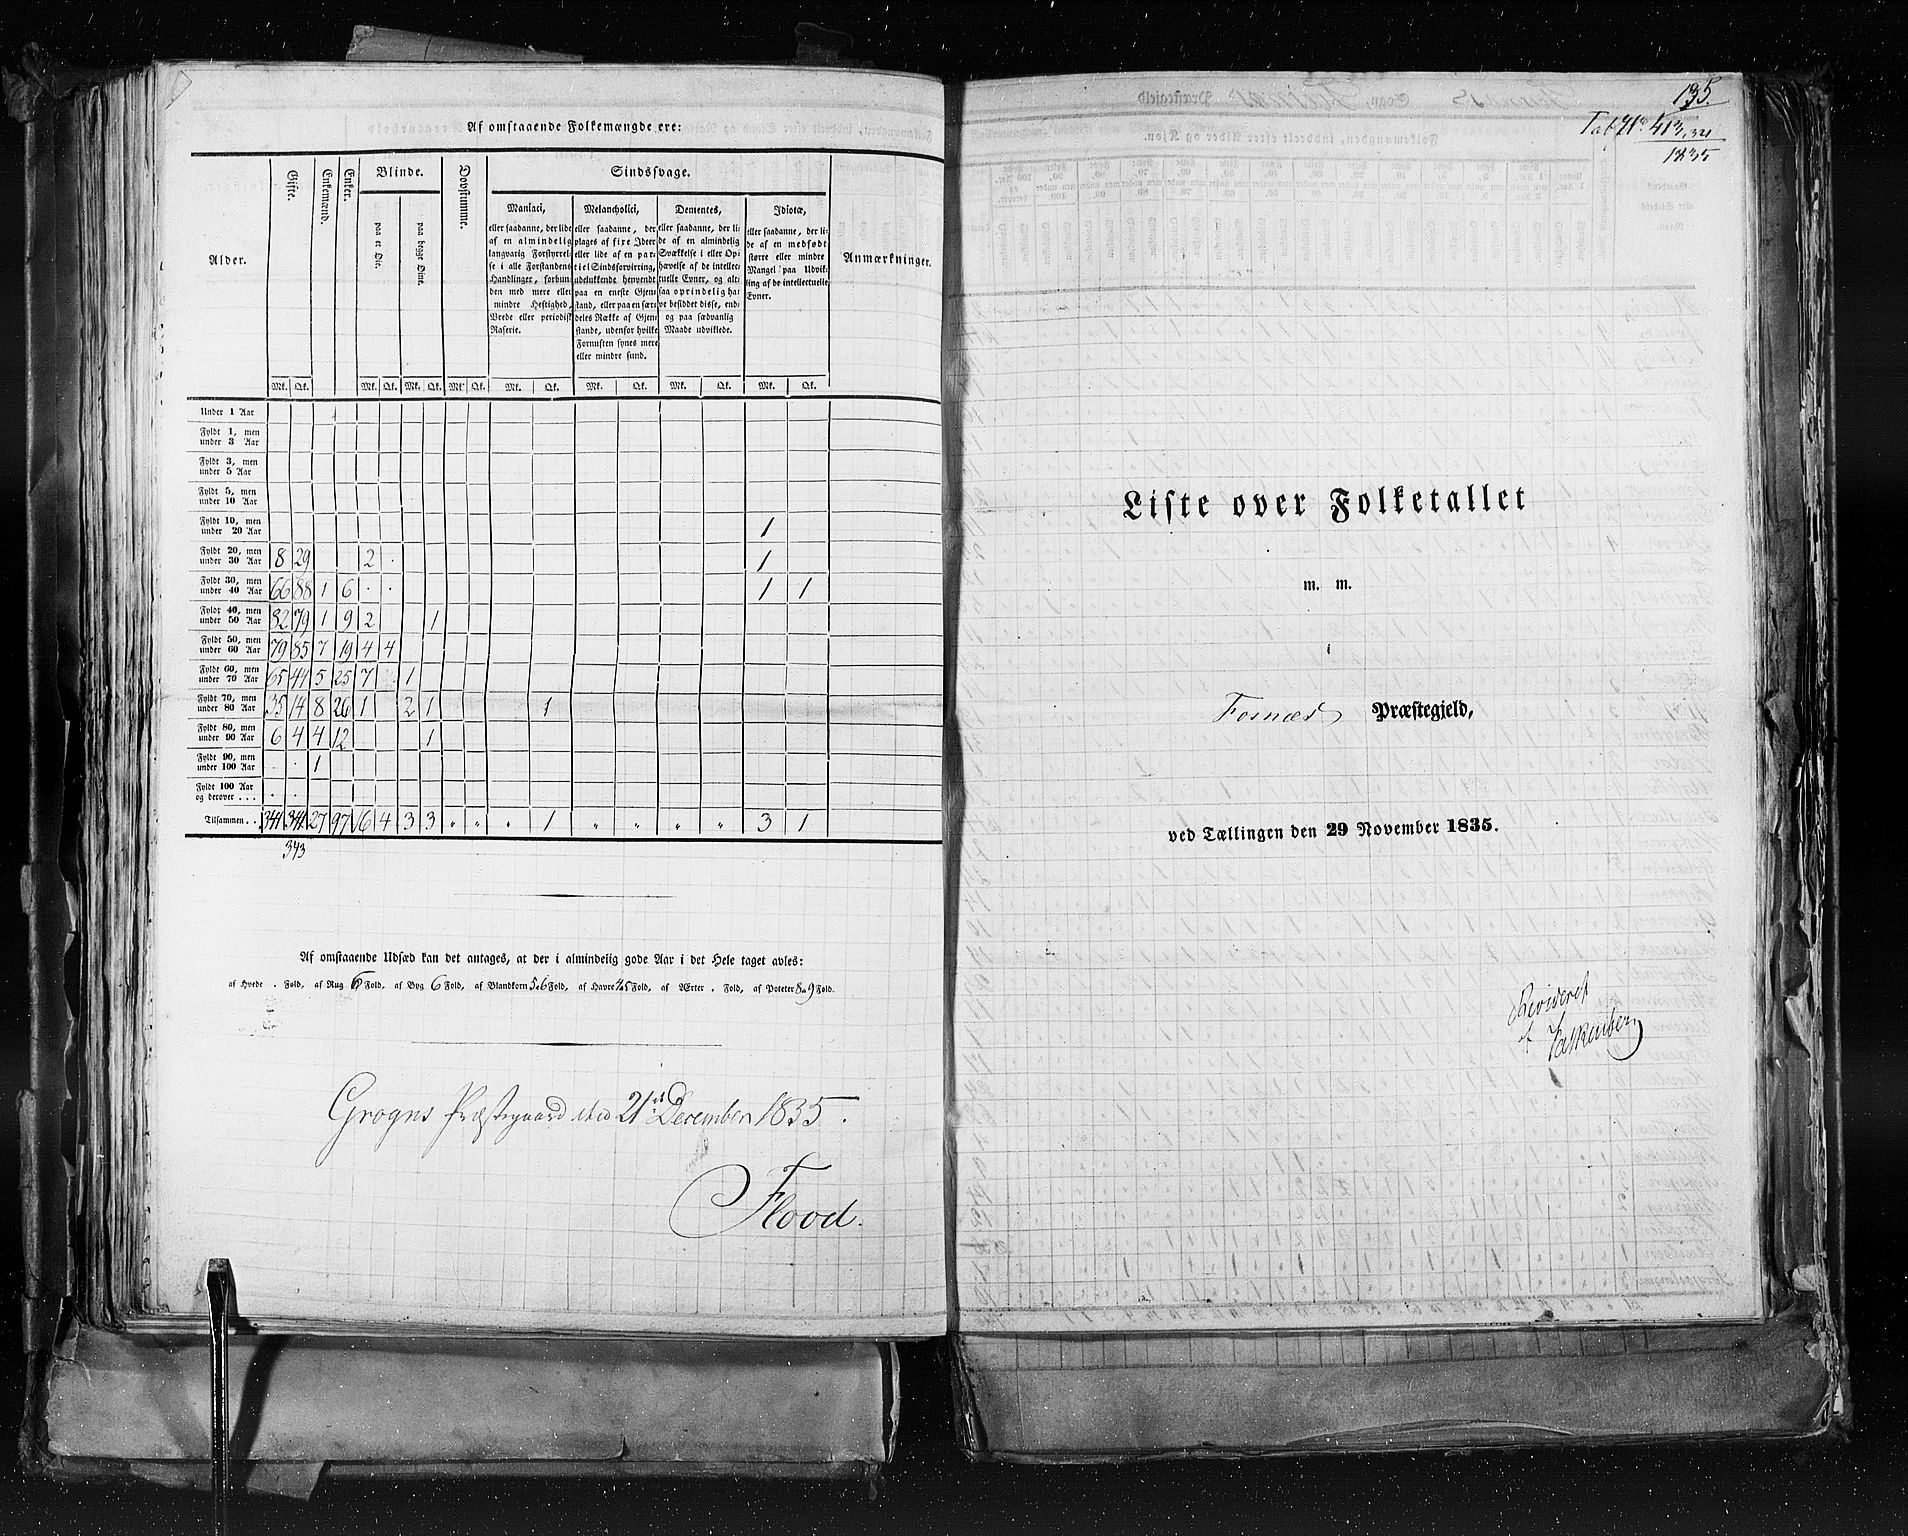 Af omstaaende Folkemængde ere:
Alder.
Gifte.
Enkemænd.
Enker.
Blinde.
paa et Øie.
paa begge Øine.
Døvstumme.
Sindssvage.
Maniaci,
eller saadanne, der lide
af en almindelig
langvarig Forstyrrel-
se i alle Forstandens
Handlinger, forbun-
den med mere eller
mindre Heftighed,
Vrede eller periodisk
Raserie.
Melancholici,
eller saadanne, der
plages af fire Ideer
eller lide af en par-
tiel Sindsforvirring,
udelukkende henvendt
paa en eneste Gjen-
stand, eller paa en sær-
deles Række af Gjen-
stande, udenfor hvilke
Fornuften synes mere
eller mindre sund.
Dementes,
eller saadanne, der li-
de af en almindelig
Svækkelse i eller Op-
hævelse af de intellec-
tuelle Evner, og alt-
saa oprindelig ha-
ve besiddet disse, end-
og paa sædvanlig
Maade udviklede.
Idiotæ,
eller saadanne, der li-
de af en medfødt
større eller mindre
Mangel paa Udvik-
ling af de intellectuelle
Evner.
Anmærkninger.
Mk. Qk. Mk. Qk. Mk. Qk. Mk. Qk. Mk. Qk. Mk. Qk. Mk. Qk. Mk. Qk.
Under 1 Aar
Fyldt 1, men
under 3 Aar
Fyldt 3, men
under 5 Aar
Fyldt 5, men
under 10 Aar
Fyldt 10, men
under 20 Aar 1
Fyldt 20, men
under 30 Aar 8 29 2 . 1
Fyldt 30, men
under 40 Aar 66 88 1 6 . . 1 1
Fyldt 40, men
under 50 Aar 82 79 1 9 2 1
Fyldt 50, men
under 60 Aar 79 85 7 19 4 4
Fyldt 60, men
under 70 Aar 65 44 5 25 7 1
Fyldt 70, men
under 80 Aar 35 14 8 26 1 2 1 1
Fyldt 80, men
under 90 Aar 6 4 4 12 1
Fyldt 90, men
under 100 Aar . . 1
Fyldt 100 Aar
og derover . . . . .
Tilsammen . . 341 27 97 16 4 3 3 " " " 1 " " " " 3 1
343
Af omstaaende Udsæd kan det antages, at der i almindelig gode Aar i det Hele taget avles:
af Hvede . Fold, af Rug 6 Fold, af Byg 6 Fold, af Blandkorn 5 à 6 Fold, af Havre 4 à 5 Fold, af Ærter . Fold, af Poteter 8 à 9 Fold.
Grogns Præstegaard den 21 December 1835.
Flood.
135.
1835
Liste over Folketallet
m. m.
i
Fosnæs Præstegjeld,
ved Tællingen den 29 November 1835.
Revideret
af